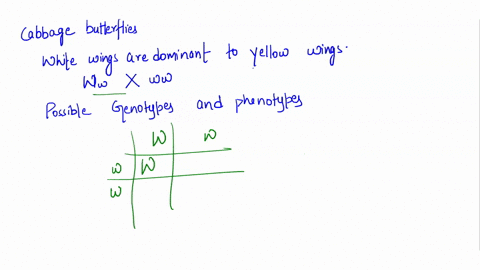 Cabbage butterflies
White wings are dominant to yellow wings.
Ww X ww
Possible Genotypes and phenotypes
W w
w W
w